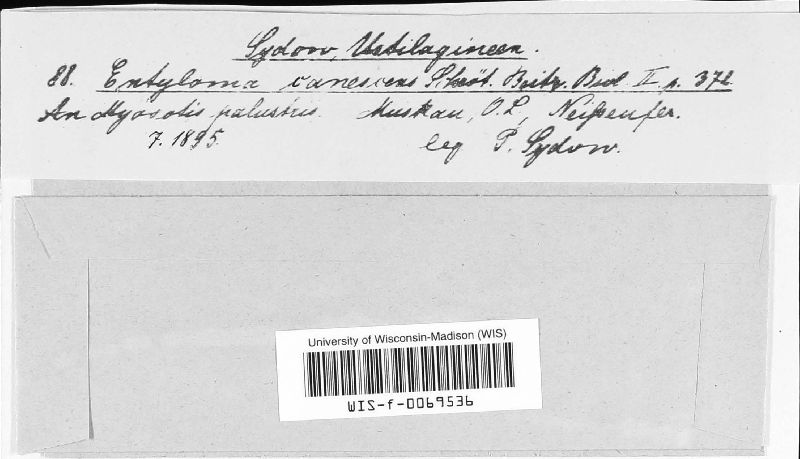 Sydow, Ustilagineen.
88. Entyloma canescens Schröt. Beitr. Biol. II p. 372
An Myosotis palustris. Muskau, O.L., Neißeufer.
7. 1895. leg P. Sydow.
University of Wisconsin-Madison (WIS)
WIS-f-0069536